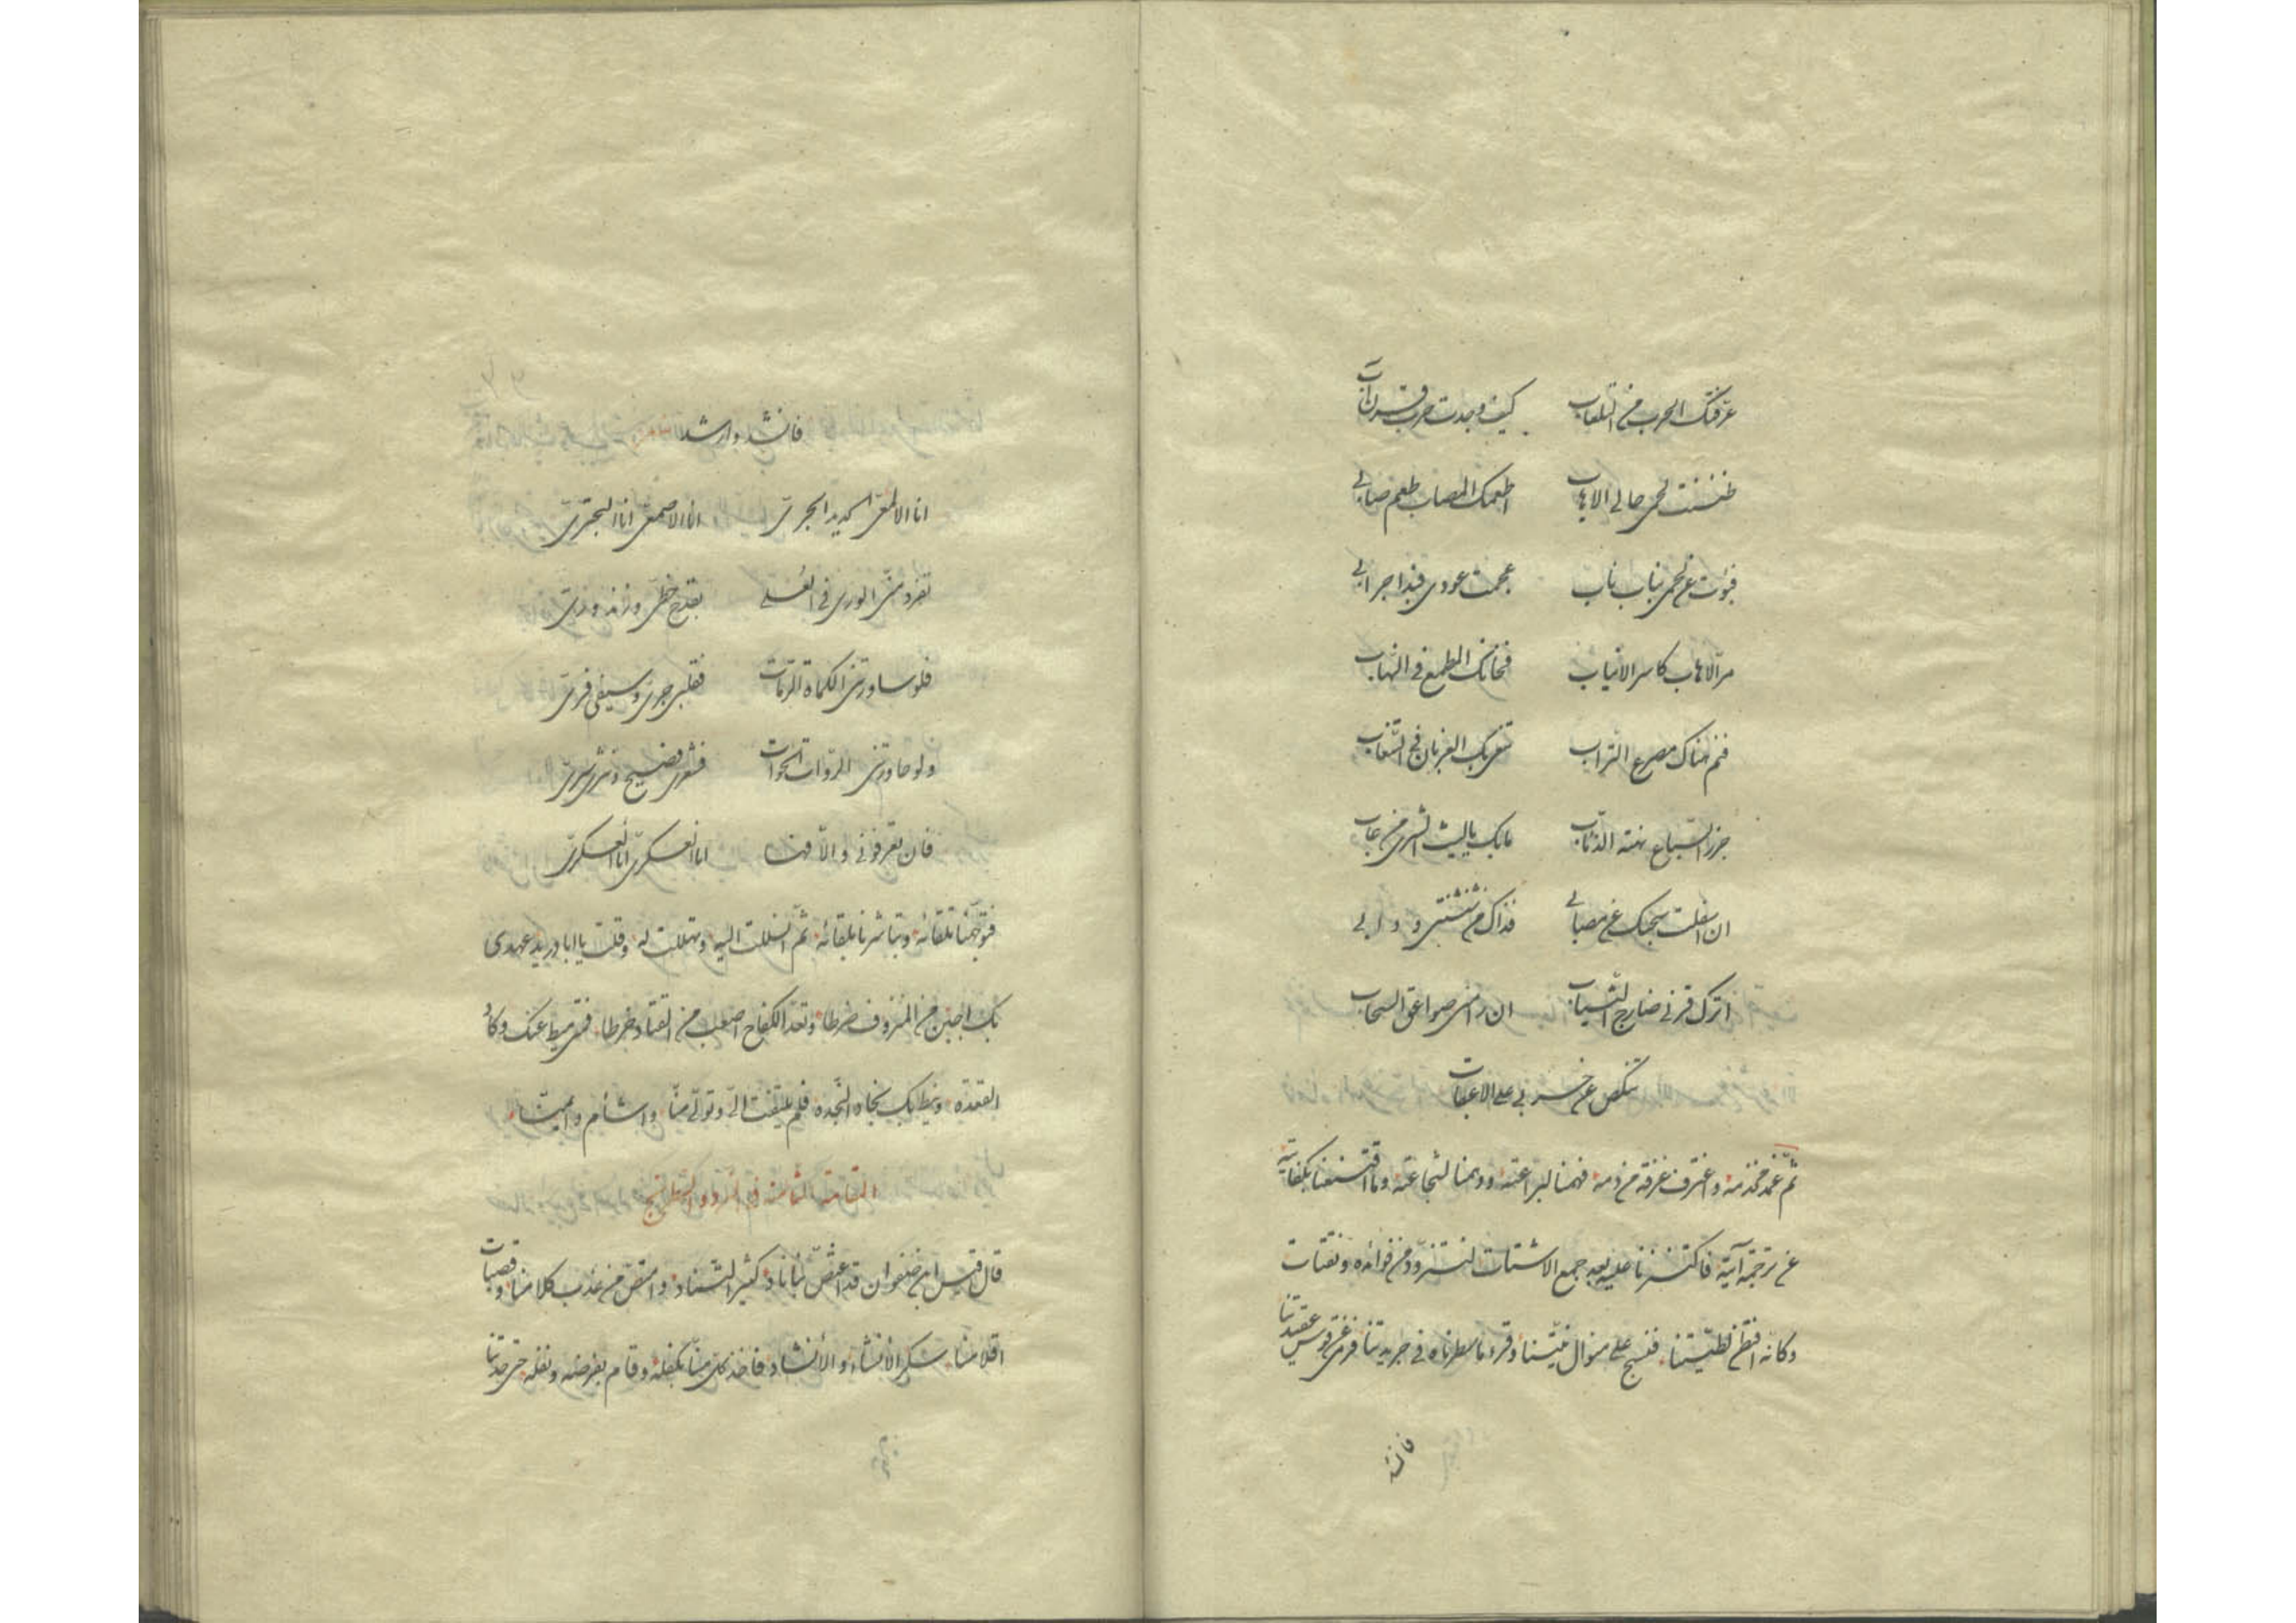 عرفتك الحرب من التلعاب كيف وجدت حرب قرن آب
ظننت لحمي حالي الاهاب اطعمك المصاب طعم صابي
فبؤت عن لحمي بناب ناب عجمت عودي فبدا جرابي
مر الاهاب كاسر الانياب فخانك الطمع في النهاب
فنم هناك مصرع التراب تنعي بك الغربان في الشعاب
جزر السباع نهسة الذئاب مابك ياليث الشرى من عاب
ان اسفلت سجيتك عن مصابي فذاك من شنشنتي ودابي
اترك قرني ضارج الثياب ان رامني صواعق السحاب
تنكص عن ضربي على الاعقاب
ثم غمد مخذمه واغترف غرفة من ذمه فهمنا لبراعته ووهمنا لشجاعته وما اقتنعنا بكفايته
عن ترجمة آيته فاكتنزنا عليه بعد جمع الاشتات لنتزود من فوائده ونقتات
وكانه افتطن لطيتنا فنسج على منوال نيتنا وقرء ما سطرناه في جريدتنا فرمى عن قوس عقيدتنا
فانشد
فانشد وارشد
انا الالمعي الجريّ انا الاصمعي انا البحتريّ
تفرد مني الورى في العلى بقدح خطي وزند وريّ
فلو ساورتني الكماة الرماة فقلبي جري وسيفي فريّ
ولو حاورتني الرواة الحواة فشعري فصيح ونثري سريّ
فان تعرفوني والا فها انا العسكري انا العسكريّ
فتوجهنا تلقائه وتباشرنا بلقائه ثم انسللت اليه وتهللت له وقلت يا ابا دريد عهدي
بك اجبن من المنزوف ضرطا وتعد الكفاح اصعب من القتاد خرطا فمتى ميط عنك وكاء
القعدة ونيط بك نجاد النجدة فلم يلتفت الي وتولى منا واشأم وايمنا
المقامة الثامنة في النرد والشطرنج
قال قيس ابن ضفوان قد اغتص بنا ناد كثير السناد وامتص من عذب كلامنا وقصبات
اقلامنا سكر الانشاء والانشاد فاخذ كل منا بكفله وقام بفرضه ونفله حتى حدتنا